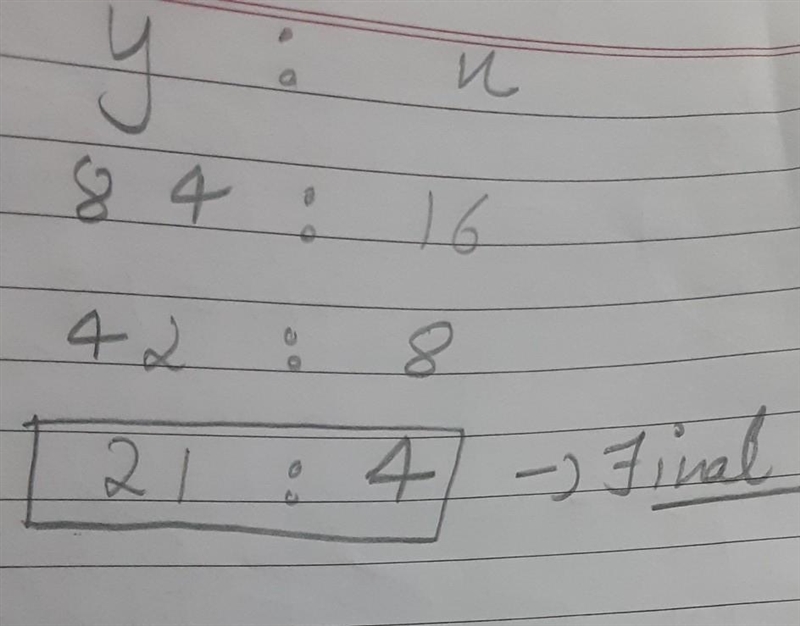 y : x
84 : 16
42 : 8
21 : 4 → Final